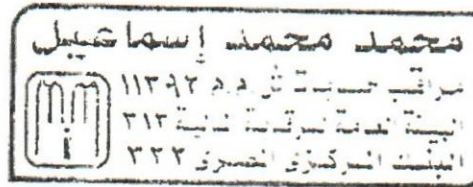 محمد محمد إسماعيل
مراقب حسابات س.م.م ١١٣٩٢
الهيئة العامة للرقابة المالية ٣١٣
البنك المركزى المصرى ٣٣٣